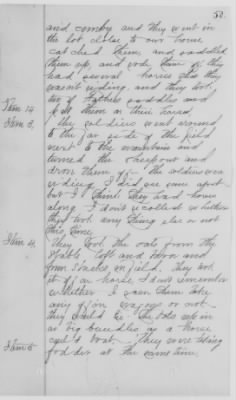 52.
and comby and they went in
the lot close to our home
catched them and saddled
them up, and rode them off, they
had several horses that they
wasent riding, and they took
two of Fathers saddles and
put them on their horses
Item 3, the soldiers went around
to the far side of the field
next to the mountain and
turned the sheep out and
drove them off - the soldiers were
riding I did see some afoot
but I think they had horses
along I dont recollect whether
they took any thing else or not
this time.
Item 4. They took the oats from the
stable loft and barn and
from stacks in field. They took
it off on horses I dont remember
whether I seen them take
any off on wagons or not -
they would tie the oats up in
as big bundles as a horse
could tote. They were taking
Item 5 fodder at the same time.